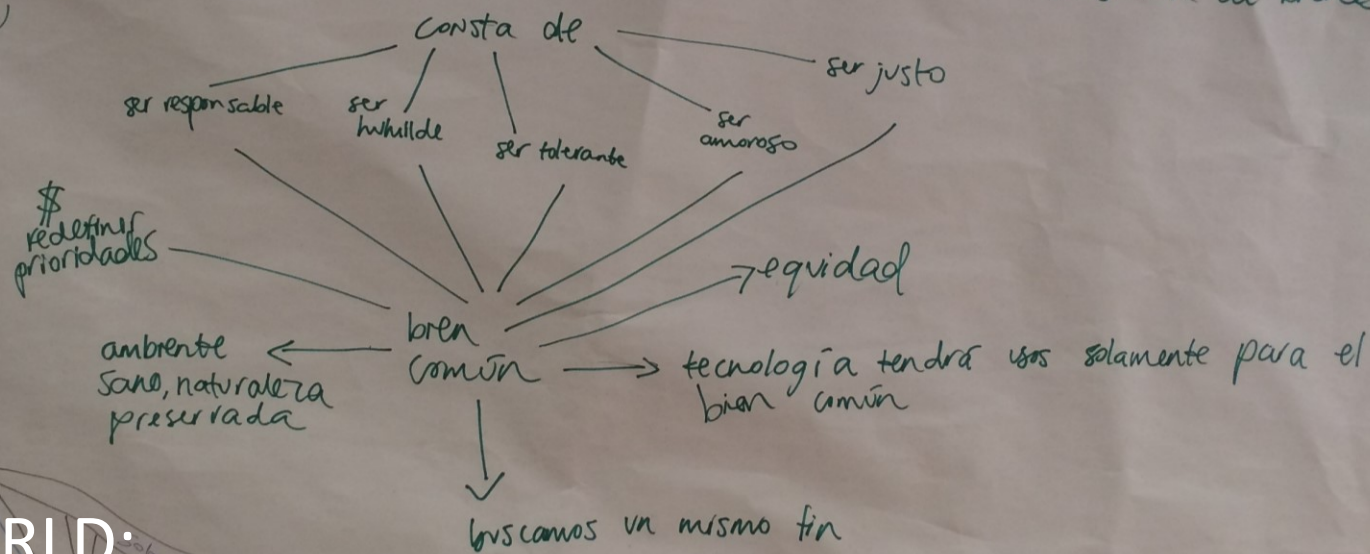 consta de
ser justo
ser responsable
ser
humilde
ser tolerante
ser
amoroso
$
redefinir
prioridades
equidad
bien
común
ambiente
sano, naturaleza
preservada
tecnología tendrá usos solamente para el
bien común
buscamos un mismo fin
RLD: